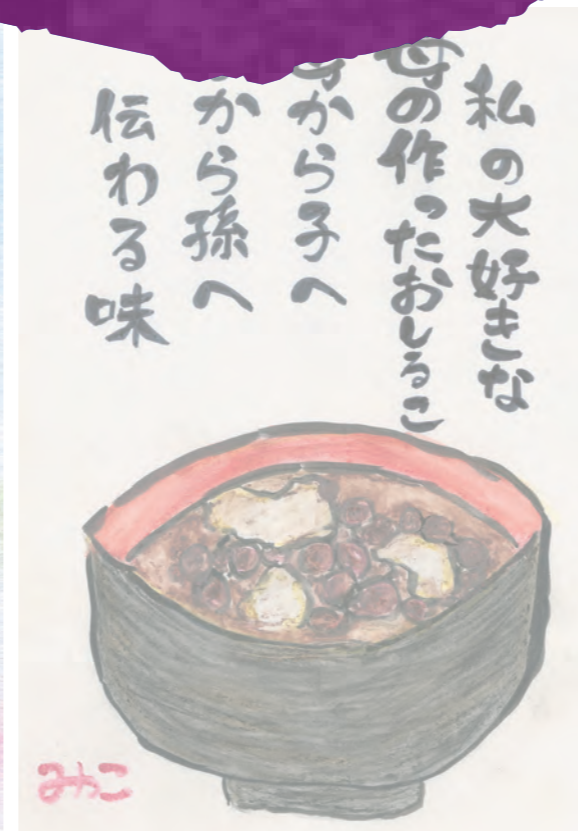 私の大好きな
母の作ったおしるこ
母から子へ
から孫へ
伝わる味
みやこ